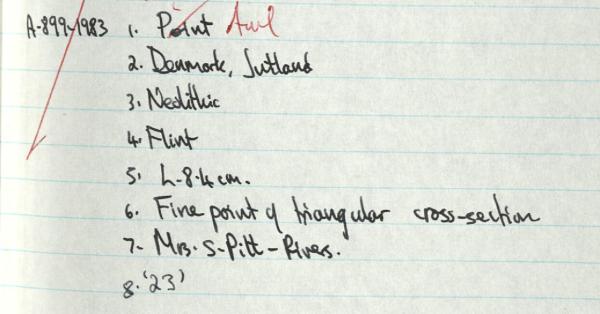 A-899-1983 1. Point Awl
2. Denmark, Jutland
3. Neolithic
4. Flint
5. L-8.4cm.
6. Fine point of triangular cross-section
7- Mrs. S-Pitt-Rivers.
8. '23'